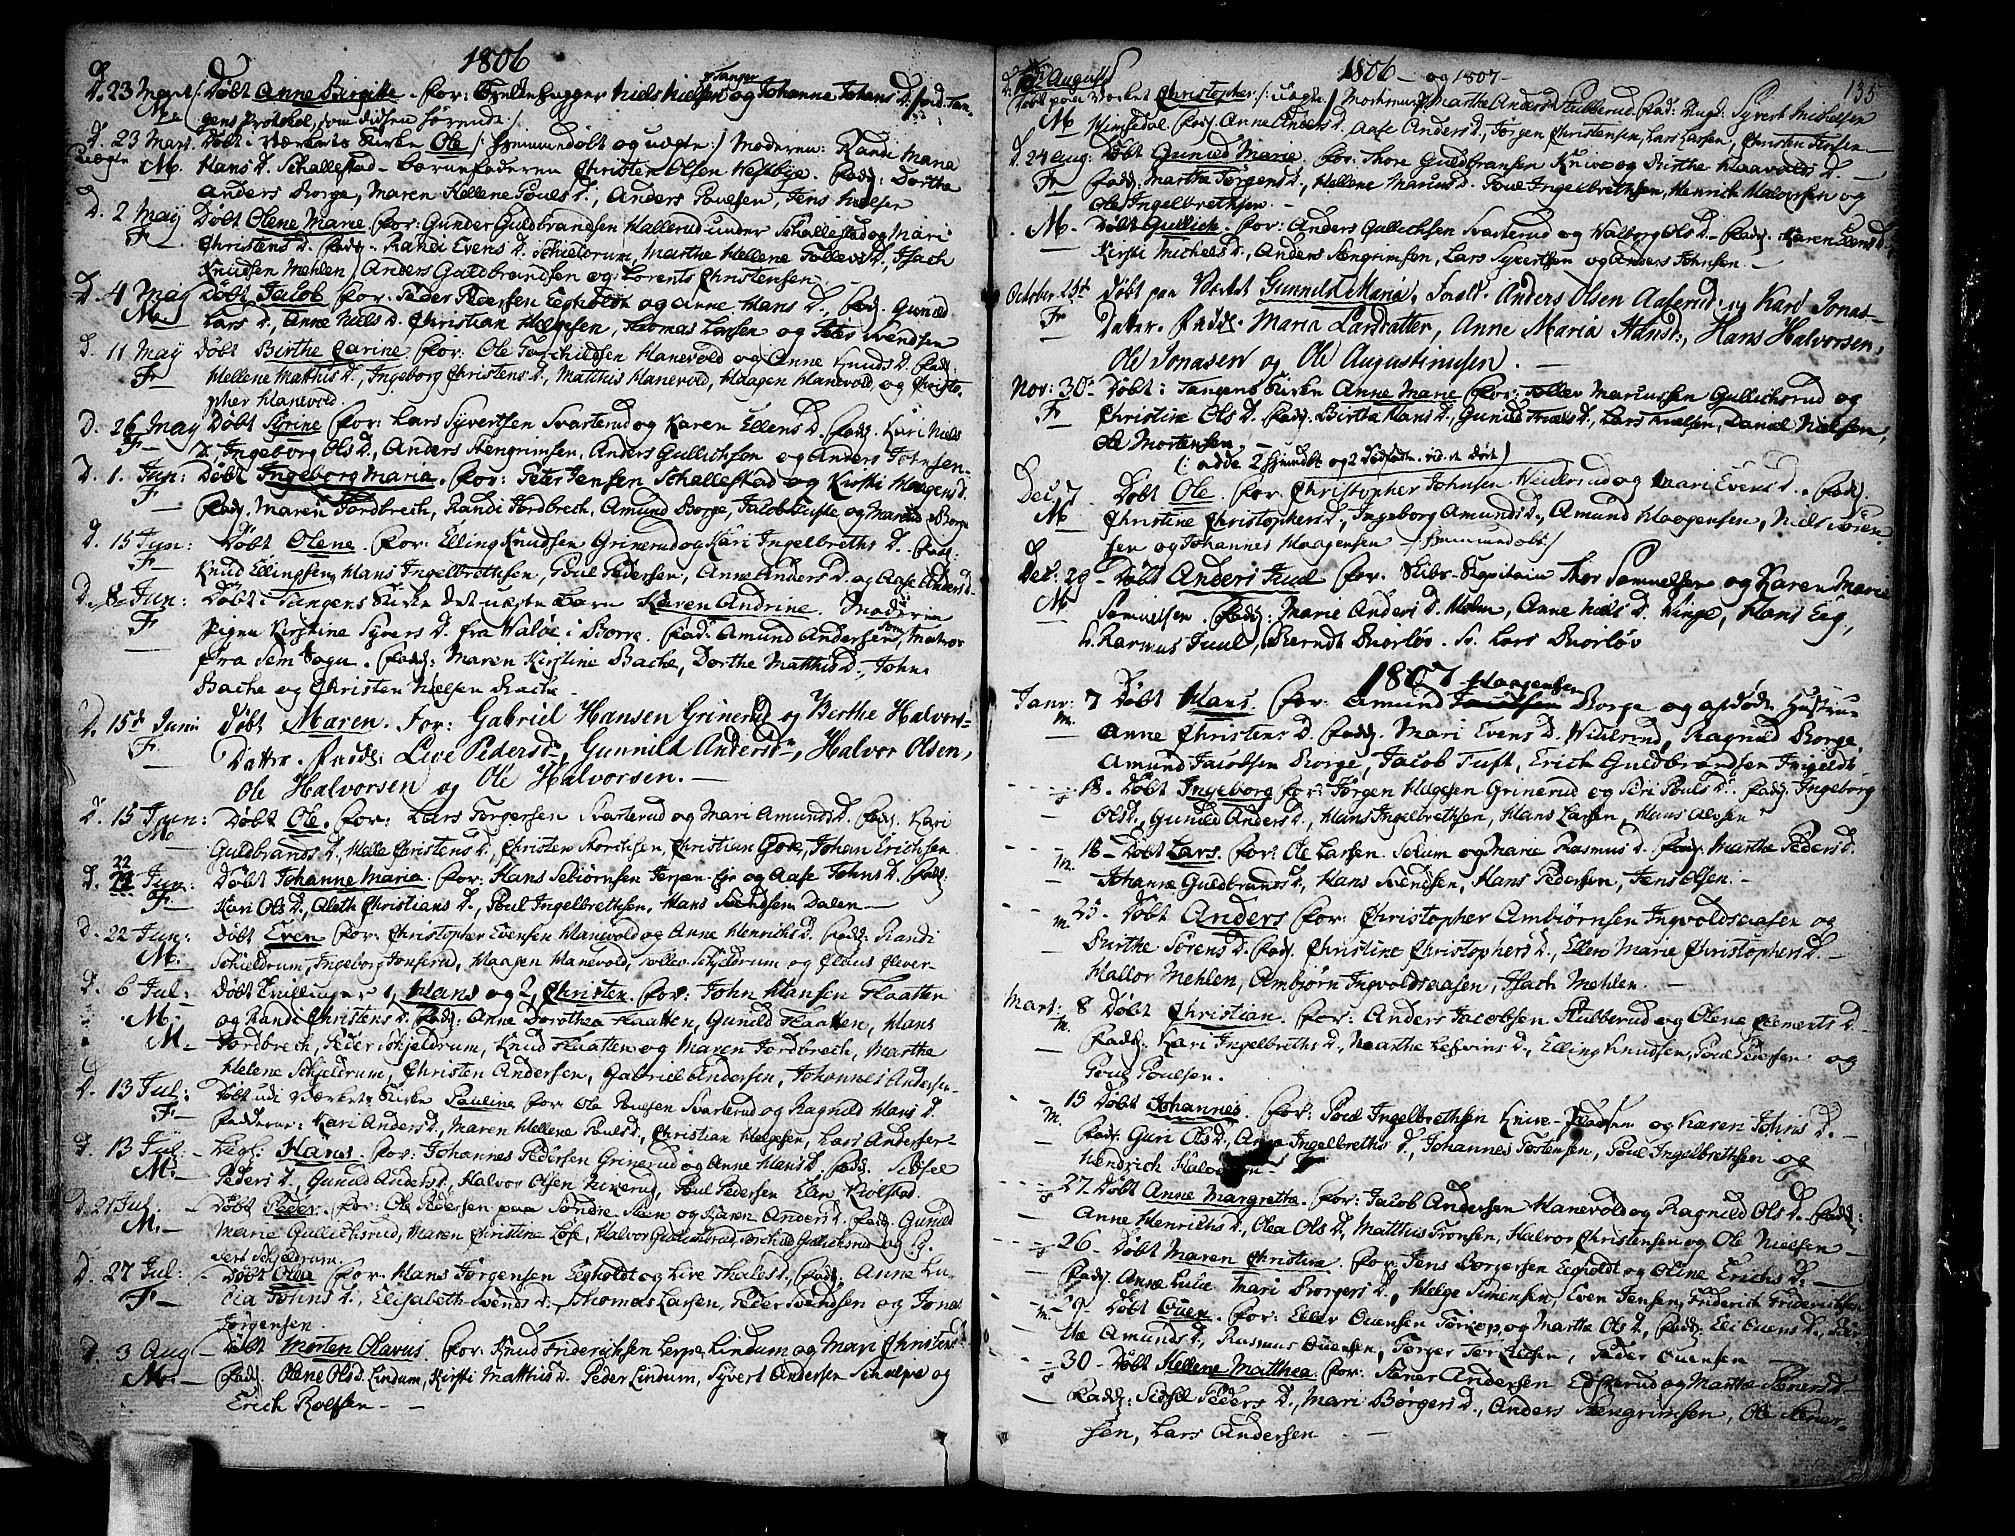 1806
D. 23 Mart. Døbt Anne Birgite. For: Niels Nielsen og Johanne Johans D.
p Tanger
gens Protokol, som didsen hørende
D. 23 Mart. Døbt i Værkets Kirke Ole (: hjemmedøbt og uægte :) Moderen: Randi Maria
Uægte M. Hans D. Schallestad - Barnefaderen Christen Olsen Hesbye. Fadd: Dorthe
Anders Borge, Maren Hellene Pouls D., Anders Poulsen, Jens Nielsen
D. 2 May Døbt Olene Marie. For: Gunder Guldbrandsen Hallerud under Schallestad og Mari
F Christens D. Fadd. Randi Evens D. Schieldrum, Marthe Hellene Tollevs D., Isach
Knudsen Mehlen, Anders Guldbrandsen og Lorents Christensen
D. 4 May Døbt Jacob. For. Peder Pedersen Eegholdt og Anne Hans D. Fadd. Gunild
M. Lars D., Anne Niels D. Christian Helgesen, Thomas Larsen og Peter Svendsen
D. 11 May Døbt Birthe Carine. For: Ole Torchildsen Hanevold og Anne Knuds D. Fadd:
F Hellene Matthis D., Ingeborg Christens D., Matthis Hanevold, Haagen Hanevold og Christo-
pher Hanevold.
D. 26 May Døbt Syrine. For: Lars Syvertsen Svarterud og Karen Ellens D. Fadd. Kari Niels
F D., Ingeborg Ols D., Anders Stengrimsen, Anders Gullichsen og Anders Johnsen
D. 1. Jun: Døbt Ingeborg Maria. For: Peter Jensen Schallestad og Kirsti Haagens D.
F Fadd. Maren Fordbrech, Randi Fordbrech, Amund Borge, Jacob Tufte og Borge
D. 15 Jun: Døbt Olene. For: Elling Knudsen Grinerud og Kari Ingelbreths D. Fadd:
F Knud Ellingsen, Hans Ingelbrethsen, Poul Pedersen, Anne Anders D. og Aase Anders D.
D. 8 Jun: Døbt i Tangens Kirke det uægte Barn Karen Andrine. Moderen
F Pigen Kirstine Syvers D. fra Valøe i Borre. Fad: Amund Andersen, Matros
fra Sem Sogn. Fadd: Maren Kirstine Bache, Dorthe Matthis D., John
Bache og Christen Nielsen Bache
D. 15d Juni Døbt Maren. For: Gabriel Hansen Grinerud og Berthe Halvors-
F Datter. Fadd: Live Pedersd., Gunnild Andersd., Halvor Olsen,
Ole Halvorsen og Ole Halvorsen. -
D. 15 Jun: Døbt Ole. For: Lars Torgersen Svarterud og Mari Amunds D. Fadd. Kari
M. Guldbrands D., Helle Christens D., Christen Torchsen, Christian Gore, Johan Erichsen
D. 22 Jun: Døbt Johanne Maria. For: Hans Sebiørnsen og Aase Johns D. Fadd:
F Kari Ols D., Aleth Christians D., Poul Ingelbrethsen, Hans Svendsen Dalen
D. 22 Jun: Døbt Even. For: Christopher Evensen Hanevold og Anne Henrichs D. Fadd: Randi
M. Schieldrum, Ingeborg Jonserud, Haagen Hanevold, Tollev Schjeldrum og Claus Clever
D. 6 Jul: Døbt Tvillinger 1, Hans og 2, Christen. For: John Hansen Flaatten
M. og Randi Christens D. Fadd: Anne Dorothea Flaatten, Gunild Flaatten, Hans
M. Fordbrech, Peder Schjeldrum, Knud Flaatten og Maren Fordbrech, Marthe
Helene Schjeldrum, Christen Andersen, Gabriel Andersen, Johannes Andersen
D. 13 Jul: Døbt udi Værkets Kirke Pauline. For Ole Poulsen Svarterud og Ragnild Hans D.
F Faddere: Kari Anders D., Maren Hellene Pouls D., Christian Helgesen, Lars Andersen
D. 13 Jul: Hans. For: Johannes Pedersen Grinerud og Anne Hans D. Fadd. Sidsel
M. Peders D., Gunild Anders D., Halvor Olsen, Poul Pedersen
D. 21 Jul: Døbt Peder. For: Ole Pedersen paa Søndre Steen og Karen Anders D. Fadd. Gunild
M. Marie Gullichsrud, Maren Christine Lofs, Halvor Gullichsrud, Torchild Gullichsrud og
sert Schjeldrum.
D. 27 Jul: Døbt Olea. For. Hans Jørgensen Eegholdt og Live Thules D., Fadd: Anne Lu-
F cia Johns D., Elisabeth Svends D., Thomas Larsen, Peder Svendsen og Jonas
Jørgensen.
D. 3 Aug Døbt Morten Olavus. For: Knud Friderichsen Lerpe, Lindum og Mari Christens D.
M. Fadd. Olene Ols D. Lindum, Kirsti Matthis D. Peder Lindum, Syvert Andersen Schalpe og
Erich Rolfsen
1806 - og 1807 -
135
D. Augusti
Døbt paa Værket Christopher (: uægte :) Moderen Marthe Anders D. Stubberud. Fad: Syvert Michelsen
M Himsedal. Fadd. Anne Anders D., Aase Anders D., Jørgen Christensen, Lars Larsen, Christen Iversen
D. 24 Aug: Døbt Gunild Marie. For: Thore Guldbransen Knive og Birthe Haavolds D.
F Fadd. Marthe Jørgens D., Hellene Marius D. Poul Ingelbrethsen, Henrich Halvorsen og
Ole Ingelbrethsen.
M. Døbt Gullich. For: Anders Gullichsen Svarterud og Valborg Ols D. Fadd. Karen Ellens D.,
Kirsti Michels D., Anders Stengrimsen, Lars Syvertsen og Anders Johnsen.
October 25d Døbt paa Værket Gunnild Maria, Forældr. Anders Olsen Aaserud og Kari Jonas-
F Dater. Fadd. Maria Larsdatter, Anne Maria Hansd:, Hans Halvorsen,
Ole Jonasen og Ole Augustinusen.
Nov: 30d Døbt i Tangens Kirke Anne Marie. For: Tollev Mariussen Gullichsrud og
F Christine Ols D. Fadd. Birthe Hans D., Gunild D., Lars Nielsen, Daniel Nielsen,
Ole Mortensen.
Dec. 7 Døbt Ole. For. Christopher Johnsen Hvidersrud og Mari Evens D. Fadd.
M Christine Christophers D., Ingeborg Amunds D., Amund Haagensen, Niels Søren-
sen og Johannes Haagensen
Dec. 29 Døbt Anders Juul. For. Skibs-Kapitain Thor Samuelsen og Karen Marie
M Samuelsen. Fadd: Marie Anders D. Holm, Anne Niels D. Hinge, Hans Eeg,
H. Rasmus Juul, Berndt Buerløv. Sr. Lars Buerløv
1807
Janr: 7 Døbt Hans. For: Amund Haagensen Borge og afdøde Hustrue
M. Anne Christens D. Fadd. Mari Evens D. Hvidersrud, Ragnild Borge,
Amund Jacobsen Borge, Jacob Tuft, Erich Guldbrandsen
18 - Døbt Ingeborg. For: Jørgen Helgesen Grinerud og Siri Pouls D. Fadd. Ingeborg
Ols D., Gunild Anders D., Hans Ingelbrethsen, Hans Larsen, Hans Olvsen
M. 18 - Døbt Lars. For: Ole Larsen Solum og Marie Rasmus D. Fadd. Marthe Peders D.
Johanne Guldbrands D., Hans Svendsen, Hans Pedersen, Jens Olsen.
M. 25 - Døbt Anders. For: Christopher Ambiørnsen Ingvoldsaasen og
Birthe Sørens D. Fadd. Christine Christophers D., Ellen Marie Christophers D.
Hallor Mehlen, Ambjørn Ingvoldsaasen, Isach Mehlen.
Mart: 8 Døbt Christian. For: Anders Jacobsen Stubberud og Olene Clements D.
M. Fadd: Kari Ingelbreths D., Marthe Lefvins D., Elling Knudsen, Poul Pedersen og
Poul Poulsen.
15 Døbt Johannes. For: Poul Ingelbrethsen Knive og Karen Johns D.
M. Fadd. Guri Ols D., Anne Ingelbreths D., Johannes Tostensen, Poul Ingelbrethsen og
Hendrich Halvorsen
27 - Døbt Anne Margrethe. For: Jacob Andersen Hanevold og Ragnild Ols D. Fadd:
Anne Henrichs D., Olea Ols D., Matthis Tronsen, Halvor Christensen og Ole Nielsen
26 - Døbt Maren Christine. For: Jens Borgersen Eegholdt og Oline Erichs D.
Fadd. Anne Lucie Mari Borgers D., Helge Simensen, Even Jensen, Friderich Friderichsen
M. Døbt Ouen. For: Eller Ouensen Torkop og Martha Ols D., Fadd: Eli Evens D.,
Amunds D., Rasmus Ouensen, Torger Terkelsen, Peder Ouensen
30 - Døbt Hellene Matthea. For: Stener Andersen og Marthe Steners D.
Fadd: Sidsel Peders D., Mari Börgers D., Anders Stengrimsen, Ole Stener-
sen, Lars Andersen